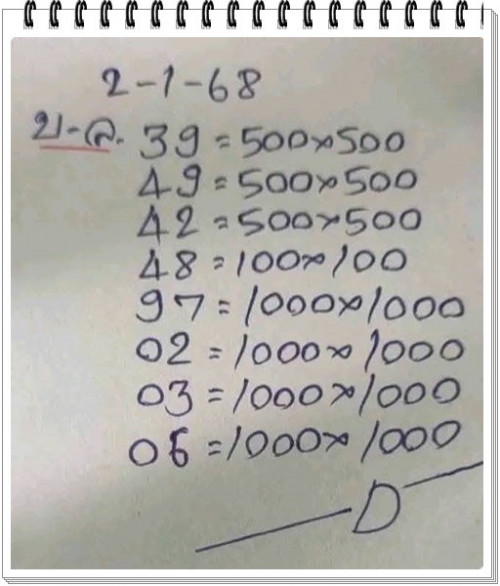 2-1-68
บ-ล. 39 = 500×500
49 = 500×500
42 = 500×500
48 = 100×100
97 = 1000×1000
02 = 1000×1000
03 = 1000×1000
06 = 1000×1000
D